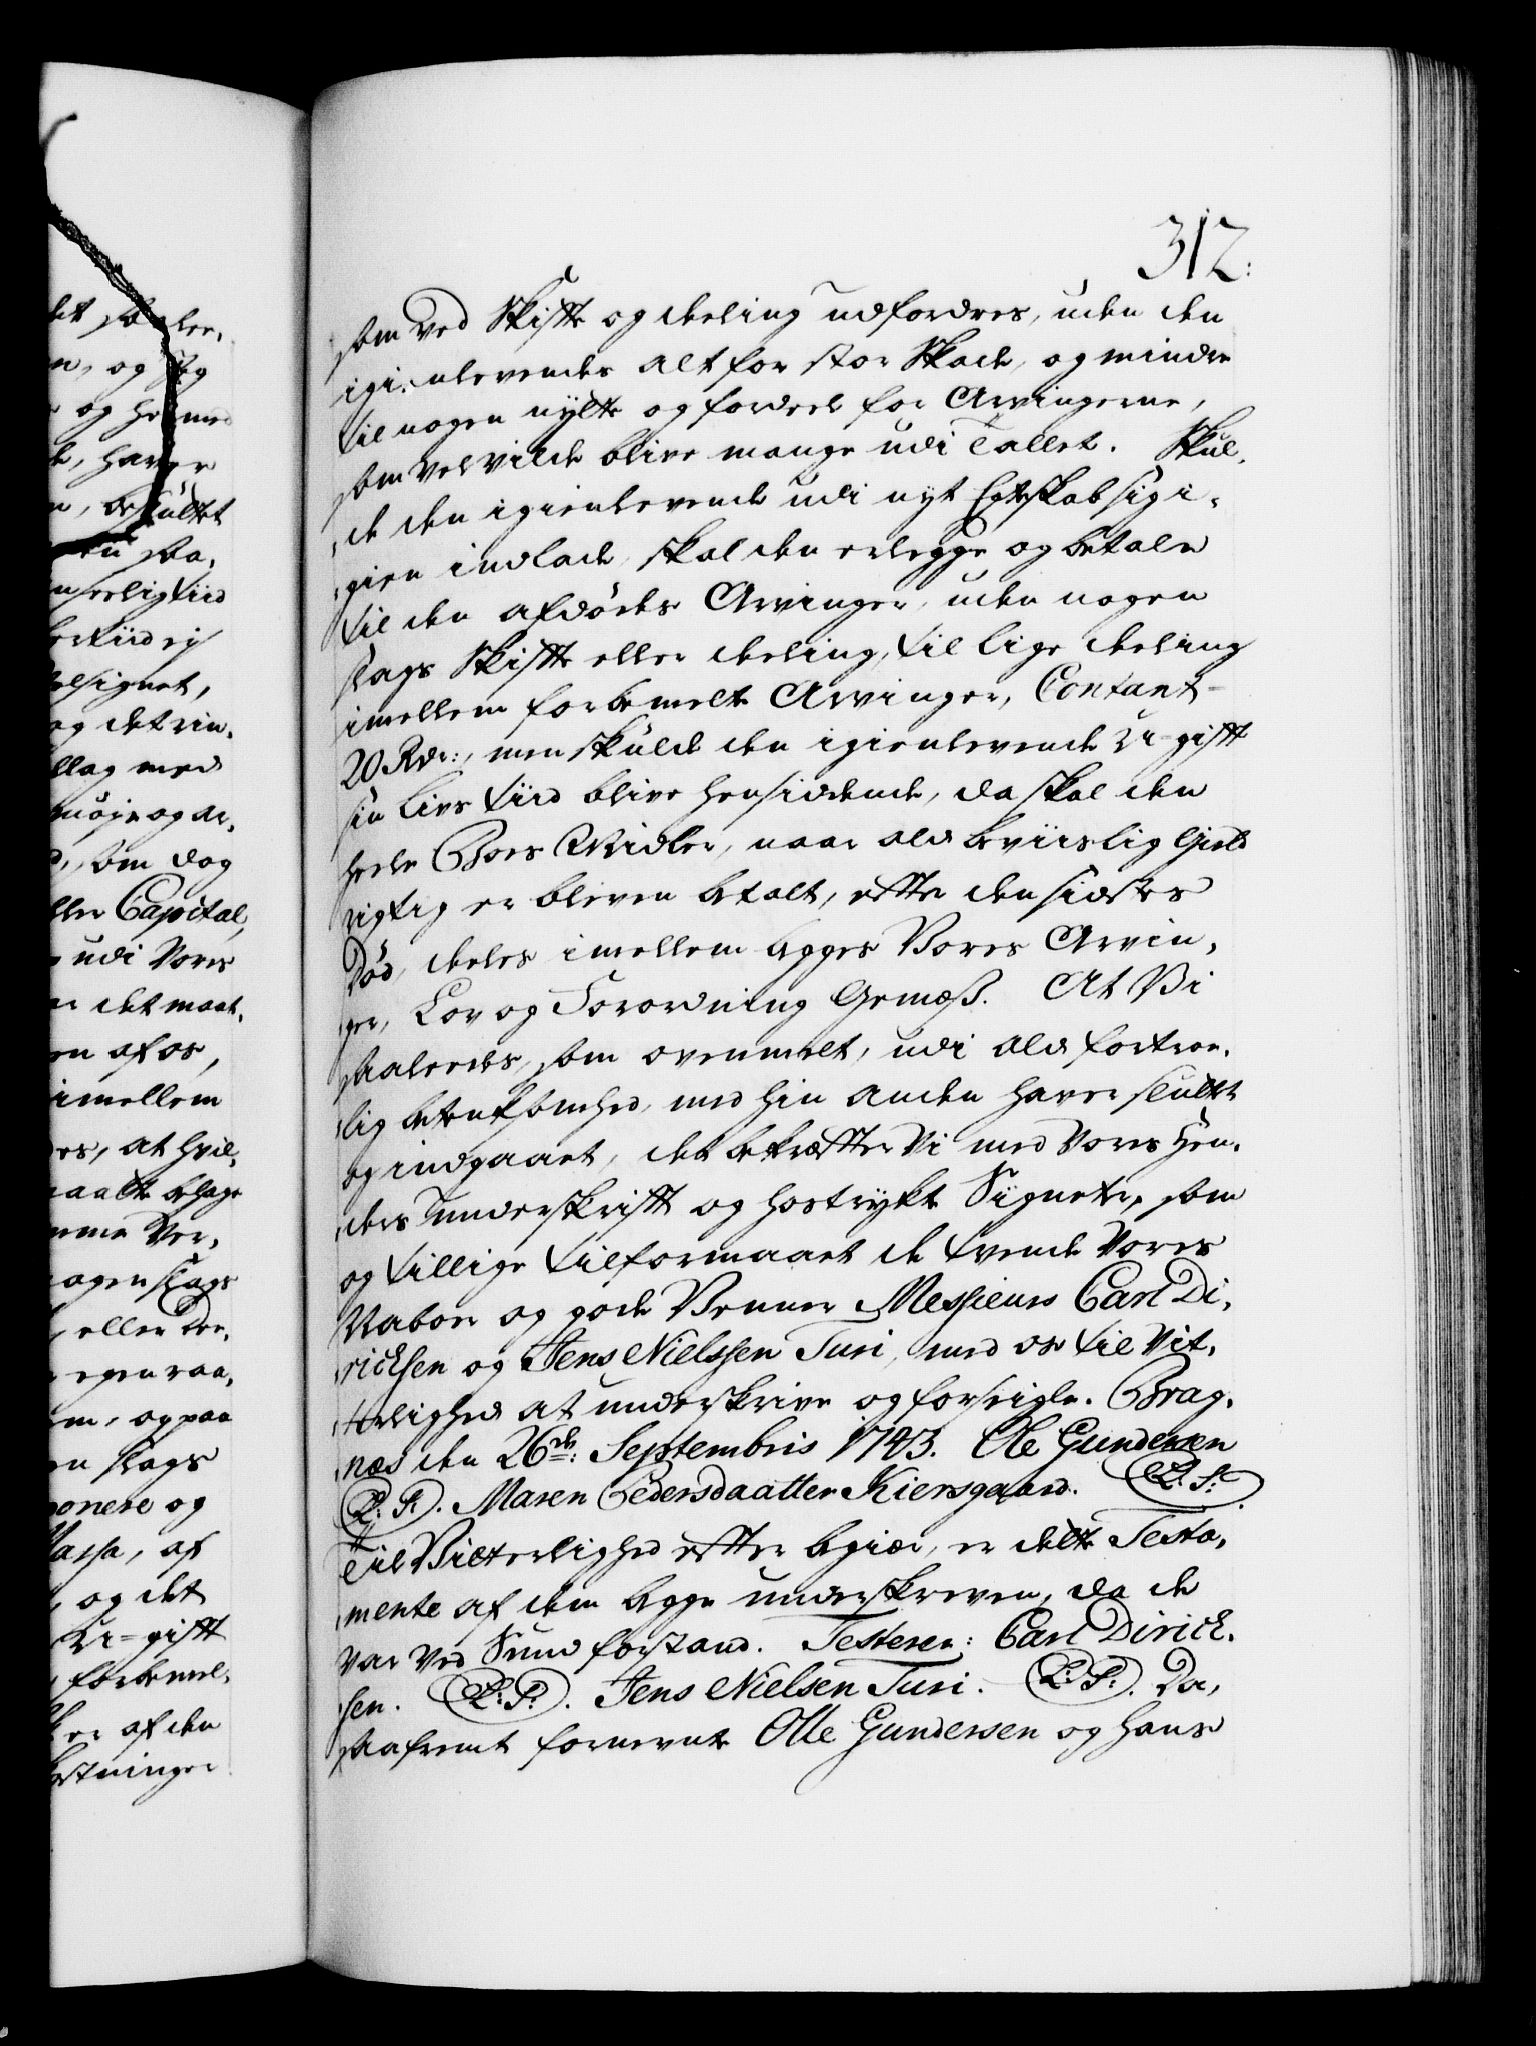 312:
som ved Skifte og deeling udfordres, uden den
igienlevendes alt for stor Skade, og mindre
til nogen nytte og fordeel for Arvingerne,
som vel vilde blive mange udi Tallet. Skul,
de den igienlevende udi nyt Egteskab sig i,
gien indlade, skal den erlegge og betale
til den afdødes Arvinger, uden nogen
slags Skifte eller deeling, til lige deeling
imellem forbemelte Arvinger, Contant
20 Rdr:, men skulde den igienlevende U-gift
sin livs tiid blive hensiddende, da skal den
heele Boes Midler, naar ald beviislig Gield
rigtig er bleven betalt, efter den sidstes
Død, deeles imellem begges Vores Arvin,
ger, Lov og Forordning Gemæß. At Vi
saaleedes, som ovenmelt, udi ald fortroe,
lig betenksomhed, med hin anden haver sluttet
og indgaaet, det bekræfter Vi med Vores Hen,
ders Underskrift og hostrykte Signeter, som
og tillige tilformaaet de tvende Vores
Naboer og gode Venner Messieurs Carl Di,
richsen og Jens Nielssen Turi, med os til Vit,
terlighed at underskrive og forseigle. Brag,
næs den 26de: Septembris 1743. Ole Gundersen
(L: S:). Maren Pedersdaatter Kiersgaard. (L: S:).
Til Vitterlighed efter begiær, er dette Testa,
mente af dem begge underskreven, da de
var ved Sund forstand. Testerer: Carl Dirich,
sen. (L: S:). Jens Nielsen Turi. (L: S:). Da,
saafremt fornevnte Olle Gundersen og hans